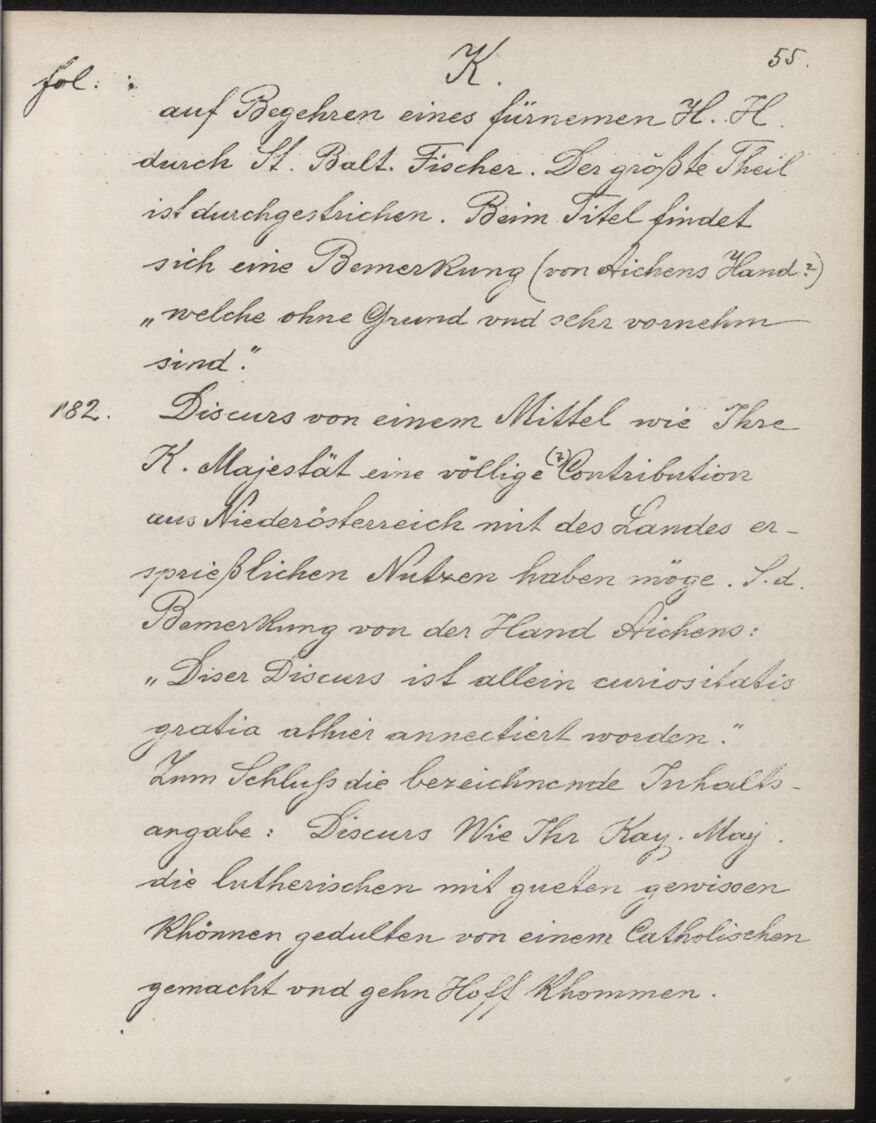 K.
55.
fol. :
auf Begehren eines fürnemen H. H.
durch St. Balt. Fischer. Der größte Theil
ist durchgestrichen. Beim Titel findet
sich eine Bemerkung (von Aichens Hand?)
„welche ohne Grund vnd sehr vornehm
sind."
182. Discurs von einem Mittel wie Ihre
K. Majestät eine völlige (?) Contribution
aus Niederösterreich mit des Landes er-
sprießlichen Nutzen haben möge. S. d.
Bemerkung von der Hand Aichens:
„Diser Discurs ist allein curiositatis
gratia alhier annectiert worden."
Zum Schluß die bezeichnende Inhalts-
angabe: Discurs Wie Ihr Kay. May.
die lutherischen mit gueten gewissen
khönnen gedulten von einem Catholischen
gemacht vnd gehn Hoff khommen.